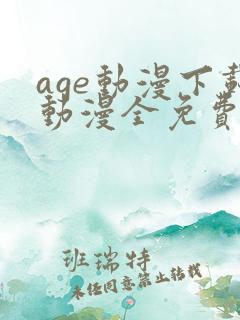 age動漫下載
動漫全免費
班瑞特
未任同意禁止转载